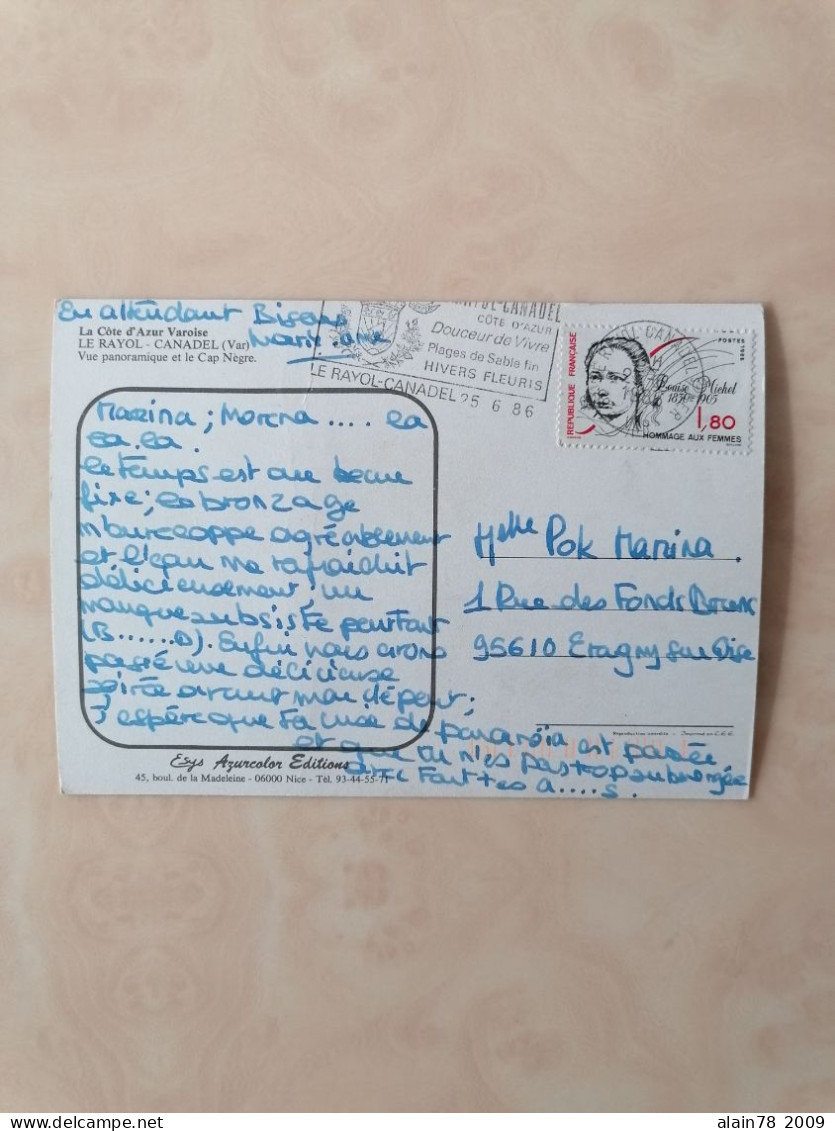 En attendant Bisous
Marie
La Côte d'Azur Varoise
LE RAYOL - CANADEL (Var)
Vue panoramique et le Cap Nègre.
Marina; Morena .... la
la.la.
le temps est au beau
fixe; le bronzage
m'enveloppe agréablement
et l'eau me rafraichit
délicieusement; un
manque subsiste pourtant
(B......D). Enfin nous avons
passé une délicieuse
soirée avant mon départ;
J'espère que ta crise de paranoïa est passée
et que tu n'es pas trop
avec a....s.
Esys Azurcolor Editions
45, boul. de la Madeleine - 06000 Nice - Tél. 93-44-55-71
RAYOL-CANADEL
CÔTE D'AZUR
Douceur de Vivre
Plages de Sable fin
HIVERS FLEURIS
LE RAYOL-CANADEL 25 6 86
RAYOL-CANADEL
REPUBLIQUE FRANÇAISE
POSTES 1986
Louise Michel
1830-1905
1,80
HOMMAGE AUX FEMMES
Melle Pok Marina.
1 Rue des Fonds
95610 Eragny sur Oise
Reproduction interdite - Imprimé en C.E.E.
alain78 2009